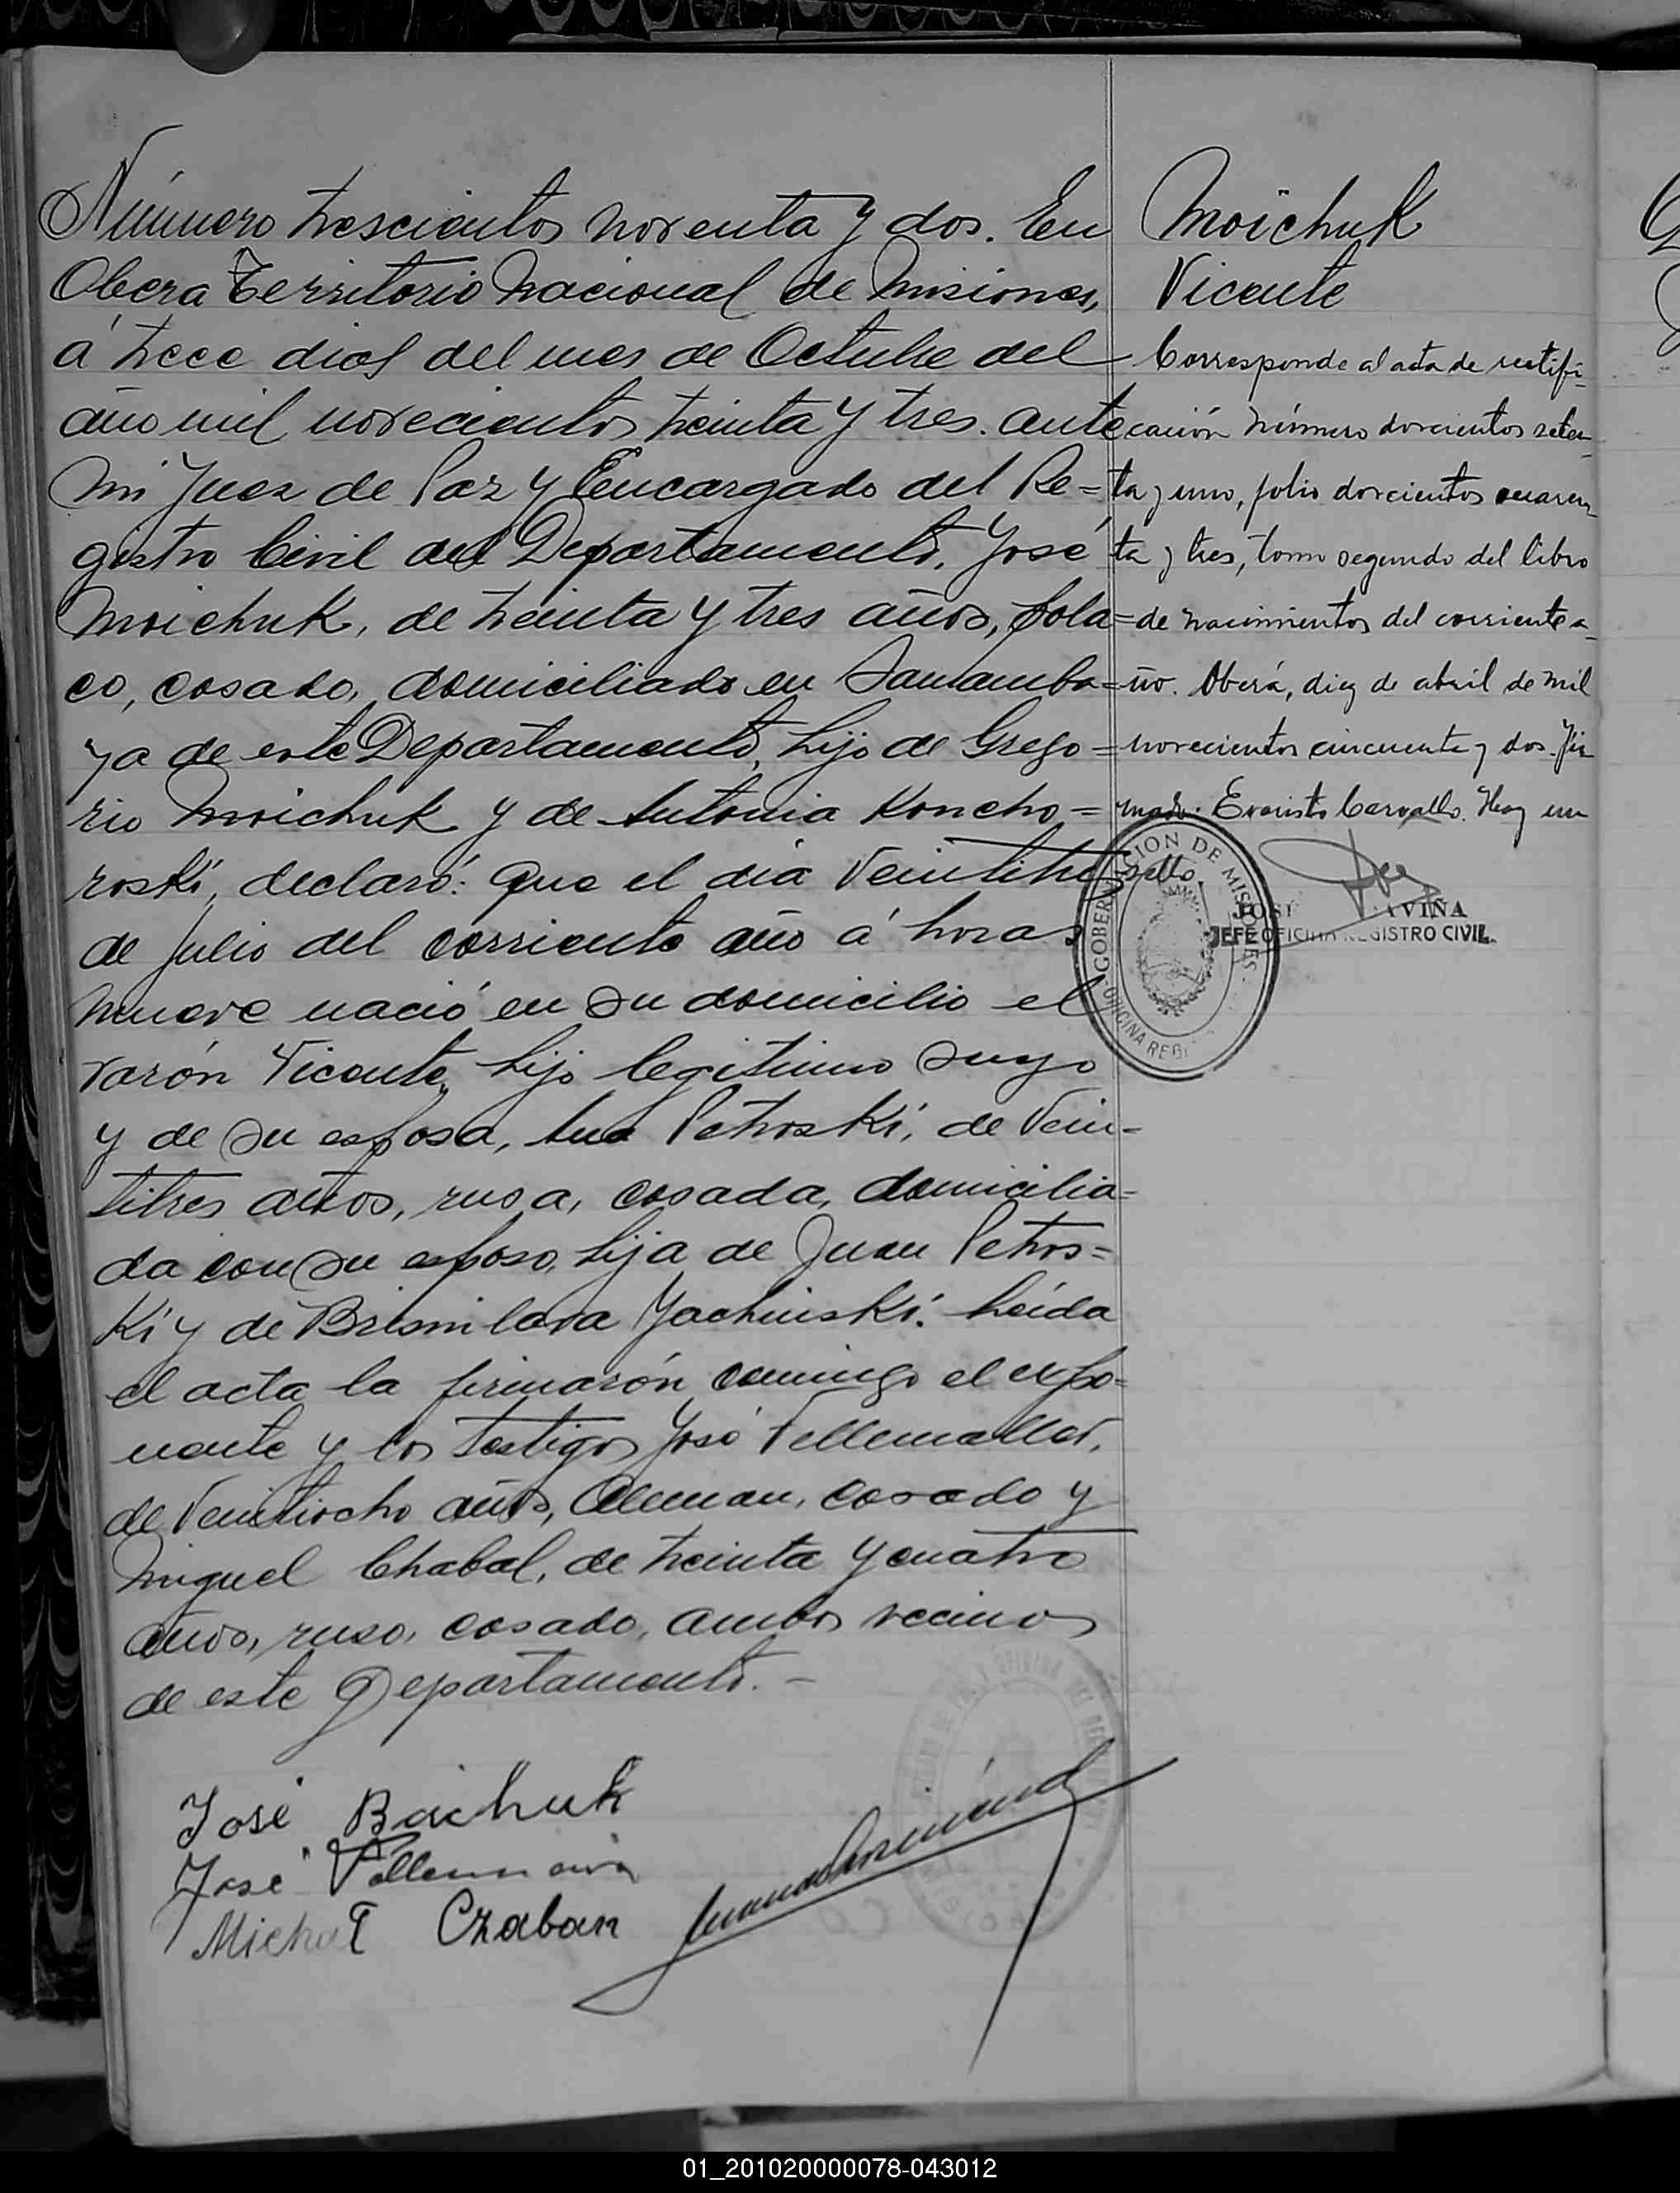 Número trescientos noventa y dos. En
Obera Territorio Nacional de Misiones,
á trece dias del mes de Octubre del
año mil novecientos treinta y tres. ante
mi Juez de Paz y Encargado del Re=
gistro Civil del Departamento, José
Moichuk, de treinta y tres años, Pola=
co, casado, domiciliado en
ya de este Departamento, hijo de Grego=
rio Moichuk y de Antonia Koncho=
roski, declaró: Que el día Veintitres
de Julio del corriente año á horas
nueve nació en su domicilio el
varón Vicente, hijo legitimo suyo
y de su esposa, Ana Petroski, de Vein-
titres años, rusa, casada, domicilia=
da con su esposo, hija de Juan Petros=
ki y de Yachinski. Leída
el acta la firmarón conmigo el expo=
nente y los testigos José
de Veintiocho años, Aleman, casado y
Miguel Chabal, de treinta y cuatro
años, ruso, casado, ambos vecinos
de este Departamento. -
José Boichuk
José
Michał Czaban
Moichuk
Vicente
Corresponde al acta de rectifi-
cación número doscientos seten-
ta y uno, folio doscientos cuaren-
ta y tres, tomo segundo del libro
de nacimientos del corriente a-
ño. Oberá, diez de abril de mil
novecientos cincuenta y dos. Fir-
mado: Evaristo Carvallo. Hay un
sello.
GOBERNACION DE MISIONES
OFICINA REGI
JOSE AVIÑA
JEFE OFICINA REGISTRO CIVIL
01_201020000078-043012